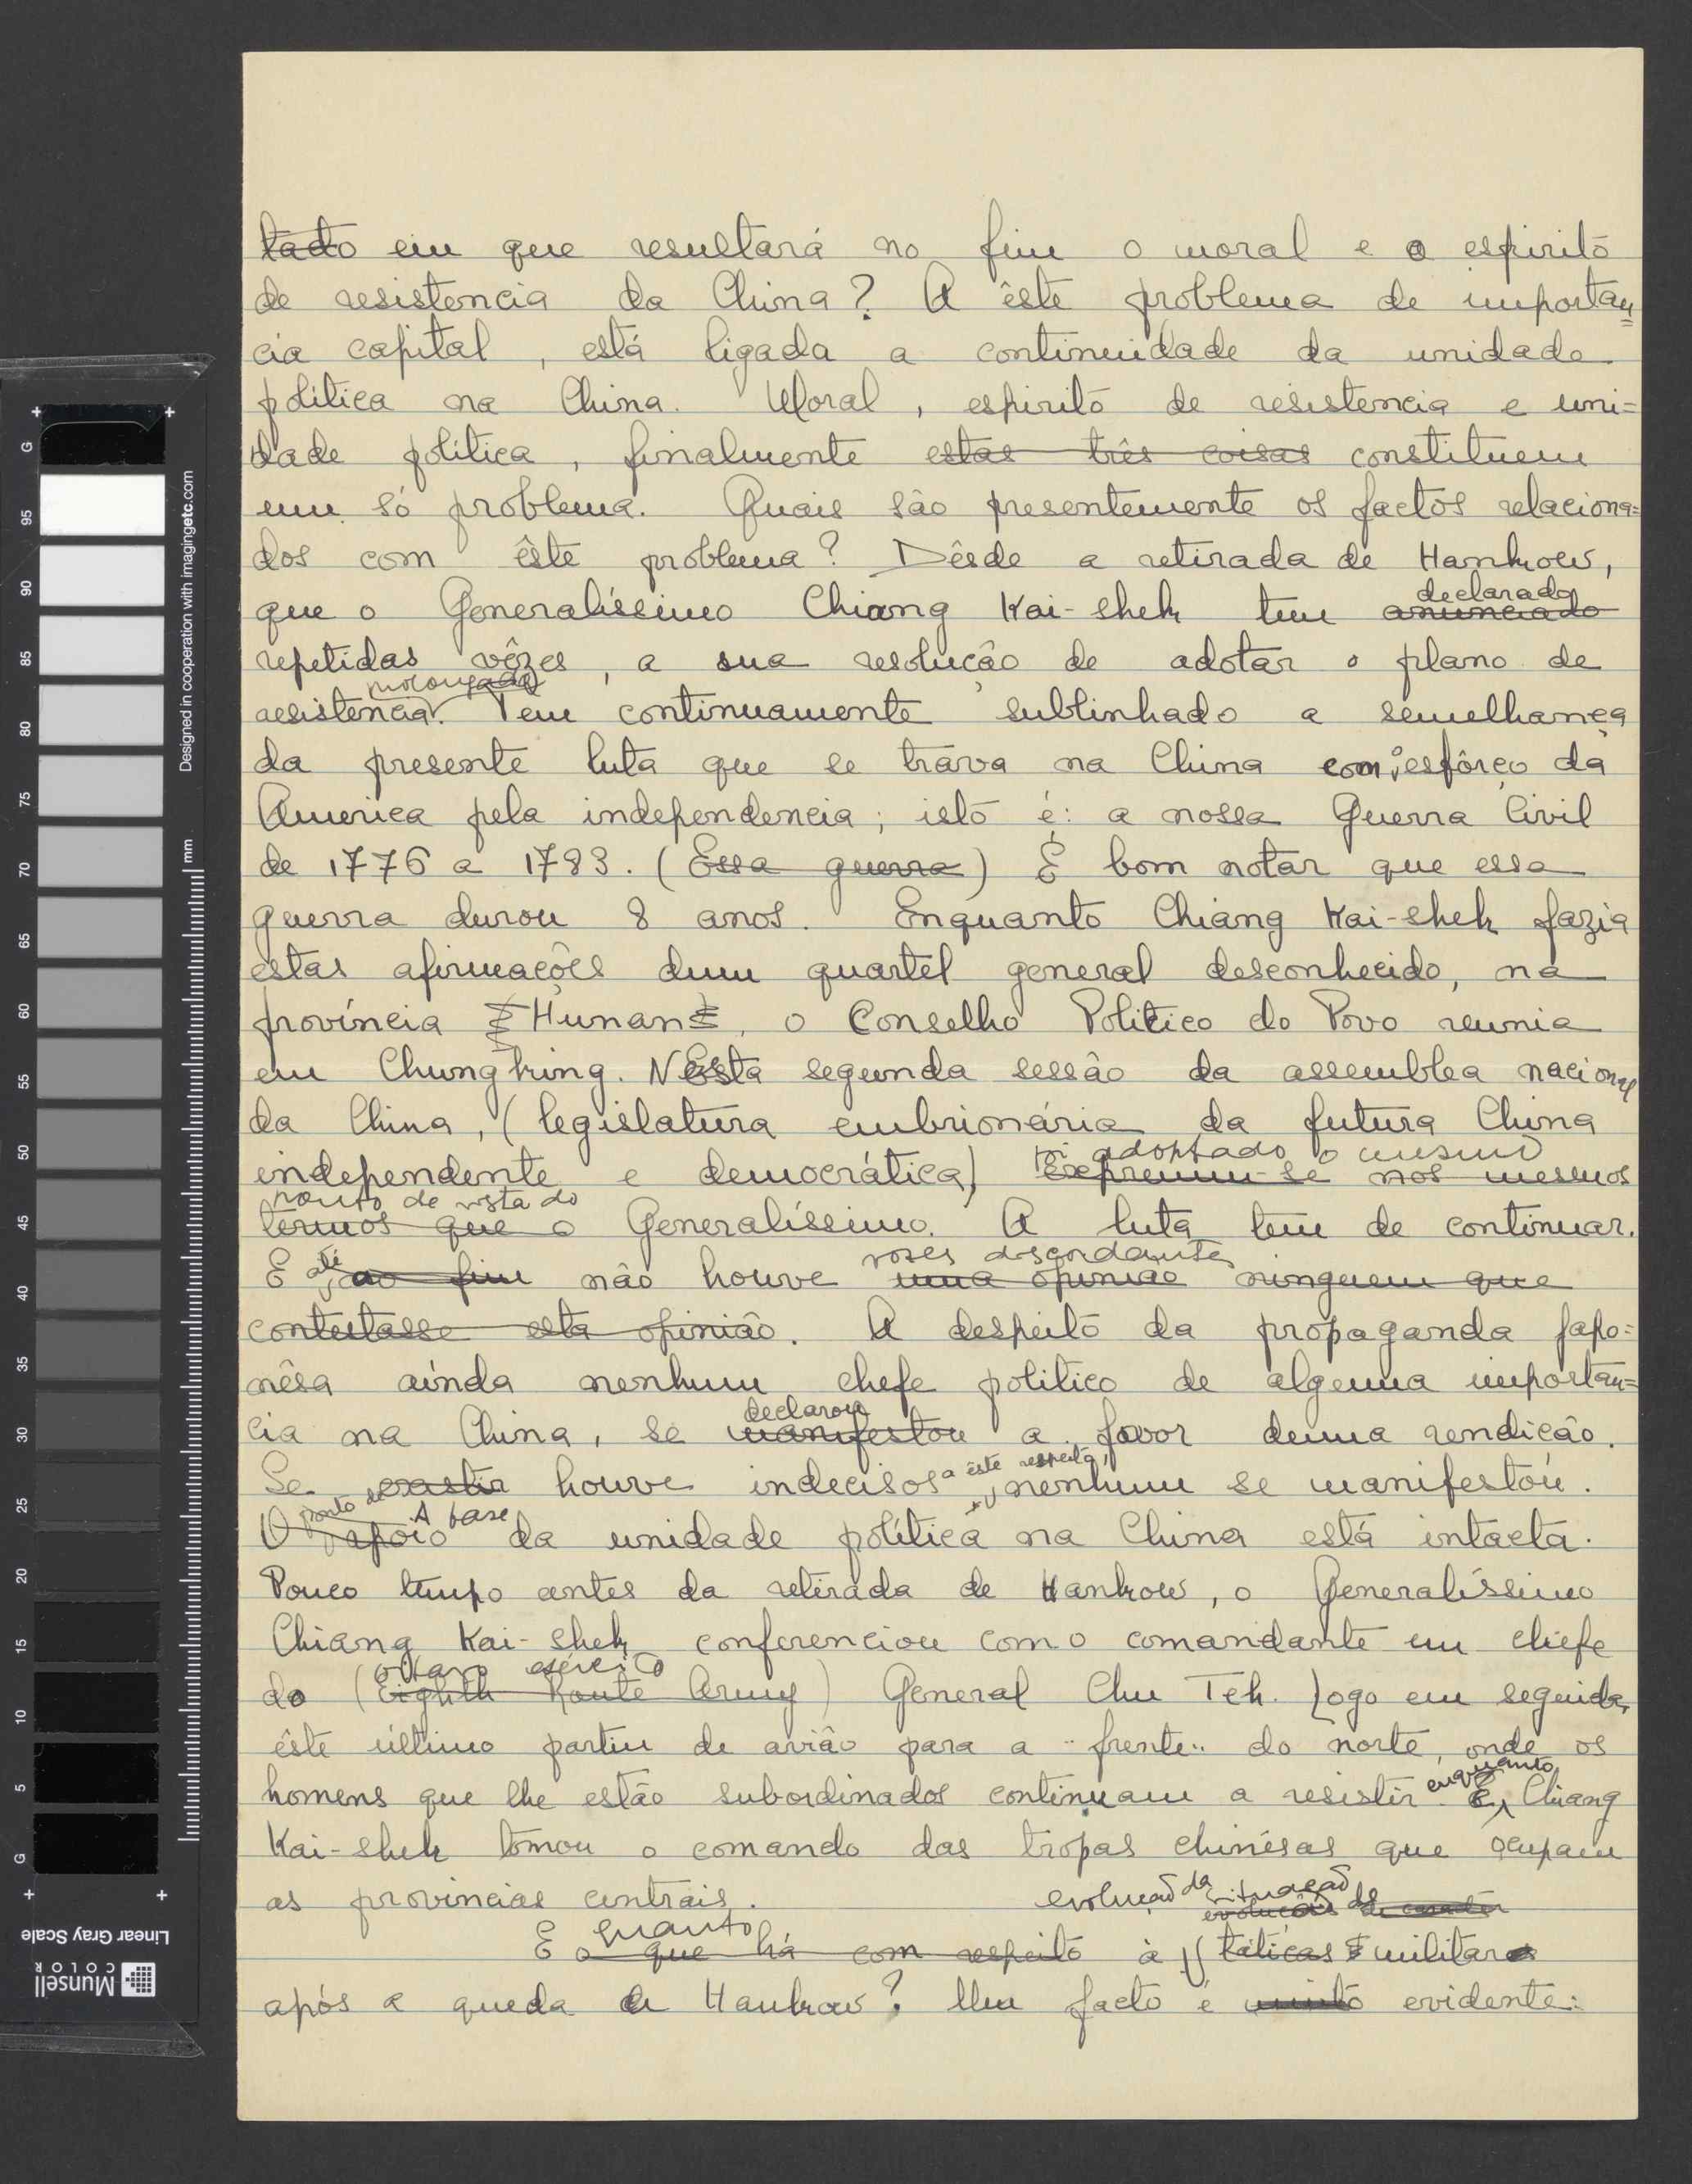 tado em que resultará no fim o moral e o espirito
de resistencia da China? A êste problema de importan=
cia capital, está ligada a continuidade da unidade
política na China. Moral, espirito de resistencia e uni=
dade política, finalmente estas três coisas constituem
um só problema. Quais são presentemente os factos relaciona=
dos com êste problema? Dêsde a retirada de Hankow,
declarado
que o Generalíssimo Chiang Kai-shek tem anunciado
repetidas vêzes, a sua resolução de adotar o plano de
prolongada
resistencia. Tem continuamente sublinhado a semelhança
da presente luta que se trava na China com o esfôrço da
America pela independencia; isto é: a nossa Guerra Civil
de 1776 a 1783. (Essa guerra) É bom notar que essa
guerra durou 8 anos. Enquanto Chiang Kai-shek fazia
estas afirmações dum quartel general desconhecido, na
província Hunan, o Conselho Politico do Povo reunia
em Chungking. Nesta segunda sessão da assemblea nacional
da China, (legislatura embrionária da futura China
foi adoptado o mesmo
independente e democrática) Exprimiu-se nos mesmos
ponto de vista do
termos que o Generalíssimo. A luta tem de continuar.
até vozes discordantes
E já ao fim não houve uma opinião ninguem que
contestasse esta opinião. A despeito da propaganda japo=
nêsa ainda nenhum chefe politico de alguma importan=
declarou
cia na China, se manifestou a favor duma rendição.
a êste respeito,
Se existir houve indecisos, nenhum se manifestou.
ponto de A base
O apoio da unidade política na China está intacta.
Pouco tempo antes da retirada de Hankow, o Generalíssimo
Chiang Kai-shek conferenciou com o comandante em chefe
oitavo exército
do (Eighth Route Army) General Chu Teh. Logo em seguida,
êste último partiu de avião para a "frente" do norte, onde os
enquanto
homens que lhe estão subordinados continuam a resistir. E, Chiang
Kai-shek tomou o comando das tropas chinêsas que ocupam
as provincias centrais.
evolução da situação
evolução de caracter
quanto
E o que há com respeito à táticas militar
após a queda de Hankow? Um facto é muito evidente:
Designed in cooperation with imagingetc.com
mm
G 95 90 85 80 75 70 65 60 55 50 45 40 35 30 25 20 15 10 5 G
Linear Gray Scale
Munsell
COLOR